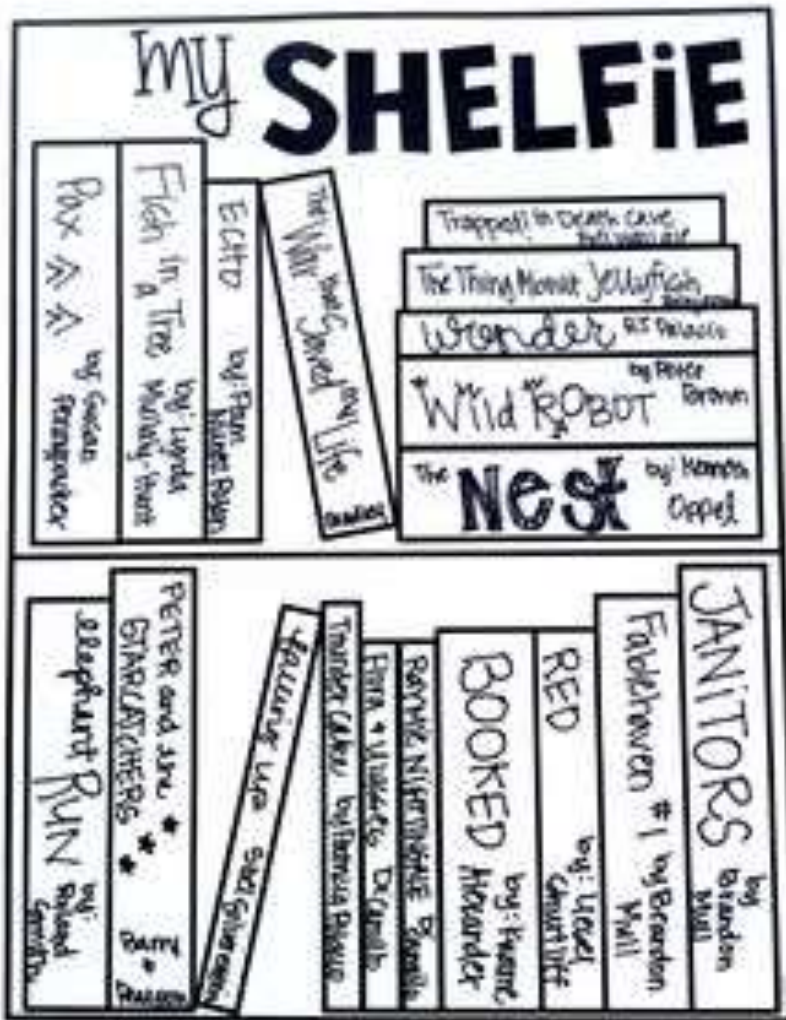 My SHELFiE
Pax
by: Sara Pennypacker
Fish in a Tree
by: Lynda Mullaly-Hunt
ECHO
by: Pam Munoz Ryan
The War that Saved my Life
Bradley
Trapped! in Death Cave
The Thing About Jellyfish
Wonder RJ Palacio
Wild ROBOT by Peter Brown
The Nest by: Kenneth Oppel
elephant RUN
by: Roland Smith
PETER and the STARCATCHERS
Barry + Pearson
Falling up Shel Silverstein
Thunder Cake by Patricia Polacco
Flora + Ulysses DiCamillo
RAYMIE NIGHTINGALE DiCamillo
BOOKED
by: Kwame Alexander
RED
by: Liesel Shurtliff
Fablehaven #1 by Brandon Mull
JANiTORS by Brandon Mull